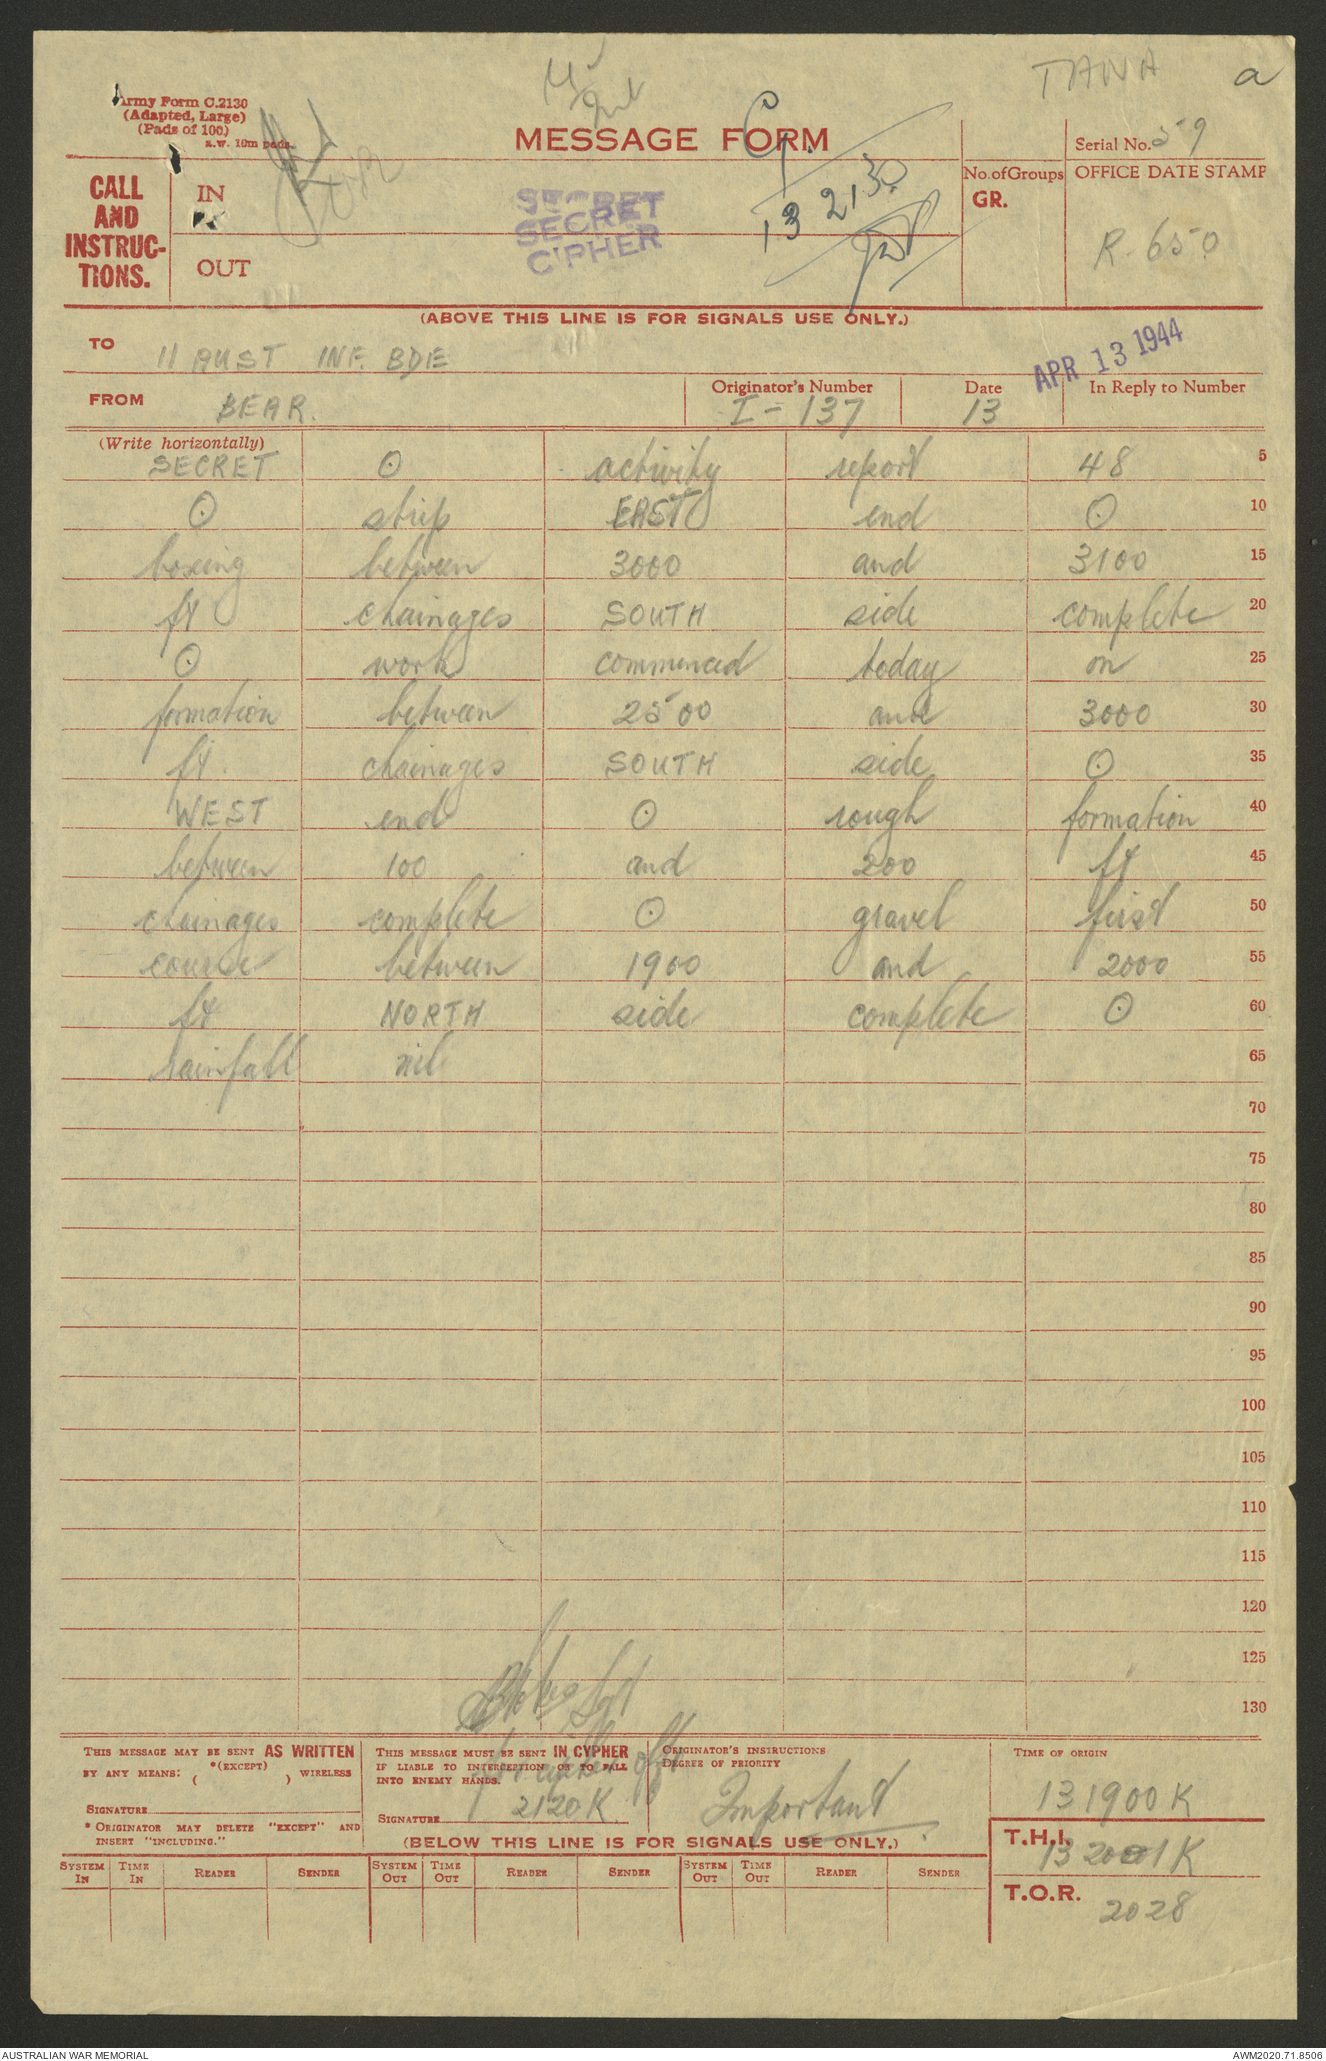 TANA a
Army Form C.2130
(Adapted, Large)
(Pads of 100.)
MESSAGE FORM
Serial No. 59
CALL AND INSTRUC-TIONS.
IN
OUT
No. of Groups
GR.
OFFICE DATE STAMP
SECRET
SECRET
CIPHER
13 2130
R-650
(ABOVE THIS LINE IS FOR SIGNALS USE ONLY.)
TO 11 AUST INF. BDE
APR 13 1944
FROM BEAR.
Originator's Number I-137
Date 13
In Reply to Number
(Write horizontally)
SECRET ⊙ activity report 48 5
⊙ strip EAST end ⊙ 10
boxing between 3000 and 3100 15
ft chainages SOUTH side complete 20
⊙ work commenced today on 25
formation between 2500 and 3000 30
ft. chainages SOUTH side ⊙ 35
WEST end ⊙ rough formation 40
between 100 and 200 ft 45
chainages complete ⊙ gravel first 50
course between 1900 and 2000 55
ft NORTH side complete ⊙ 60
rainfall nil 65
70
75
80
85
90
95
100
105
110
115
120
125
130
THIS MESSAGE MAY BE SENT AS WRITTEN
BY ANY MEANS: *(EXCEPT) ( ) WIRELESS
SIGNATURE
* ORIGINATOR MAY DELETE "EXCEPT" AND
INSERT "INCLUDING."
THIS MESSAGE MUST BE SENT IN CYPHER
IF LIABLE TO INTERCEPTION OR TO FALL
INTO ENEMY HANDS.
SIGNATURE 2120K
ORIGINATOR'S INSTRUCTIONS
DEGREE OF PRIORITY
Important
TIME OF ORIGIN
131900K
(BELOW THIS LINE IS FOR SIGNALS USE ONLY.)
T.H.I.
T.O.R. 2028
SYSTEM IN TIME IN READER SENDER SYSTEM OUT TIME OUT READER SENDER SYSTEM OUT TIME OUT READER SENDER
AUSTRALIAN WAR MEMORIAL AWM2020.71.8506